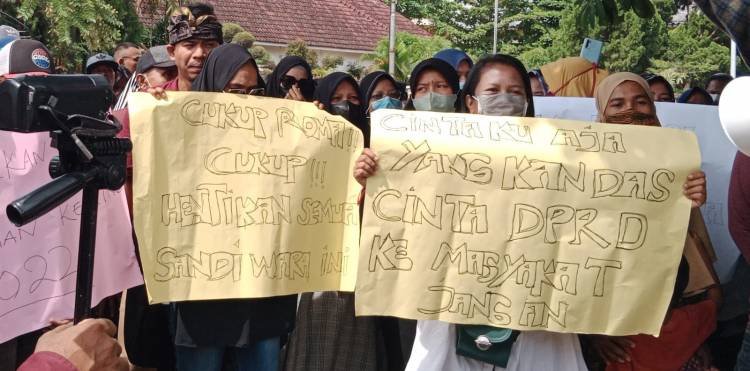 CUKUP ROMA!!!
CUKUP !!!
HENTIKAN SEMUA
SANDI WARA INI
CINTA KU AJA
YANG KANDAS
CINTA DPRD
KE MASYAKAT
JANGAN